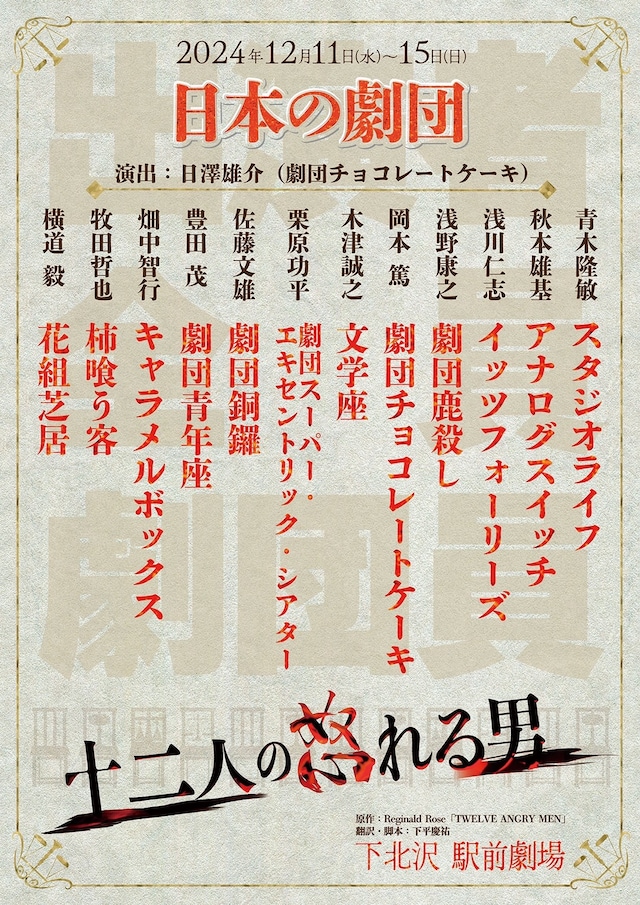 2024年12月11日(水)～15日(日)
日本の劇団
演出：日澤雄介（劇団チョコレートケーキ）
青木隆敏
スタジオライフ
秋本雄基
アナログスイッチ
浅川仁志
イッツフォーリーズ
浅野康之
劇団鹿殺し
岡本篤
劇団チョコレートケーキ
木津誠之
文学座
栗原功平
劇団スーパー・
エキセントリック・シアター
佐藤文雄
劇団銅鑼
豊田茂
劇団青年座
畑中智行
キャラメルボックス
牧田哲也
柿喰う客
横道毅
花組芝居
十二人の怒れる男
原作：Reginald Rose「TWELVE ANGRY MEN」
翻訳・脚本：下平慶祐
下北沢 駅前劇場